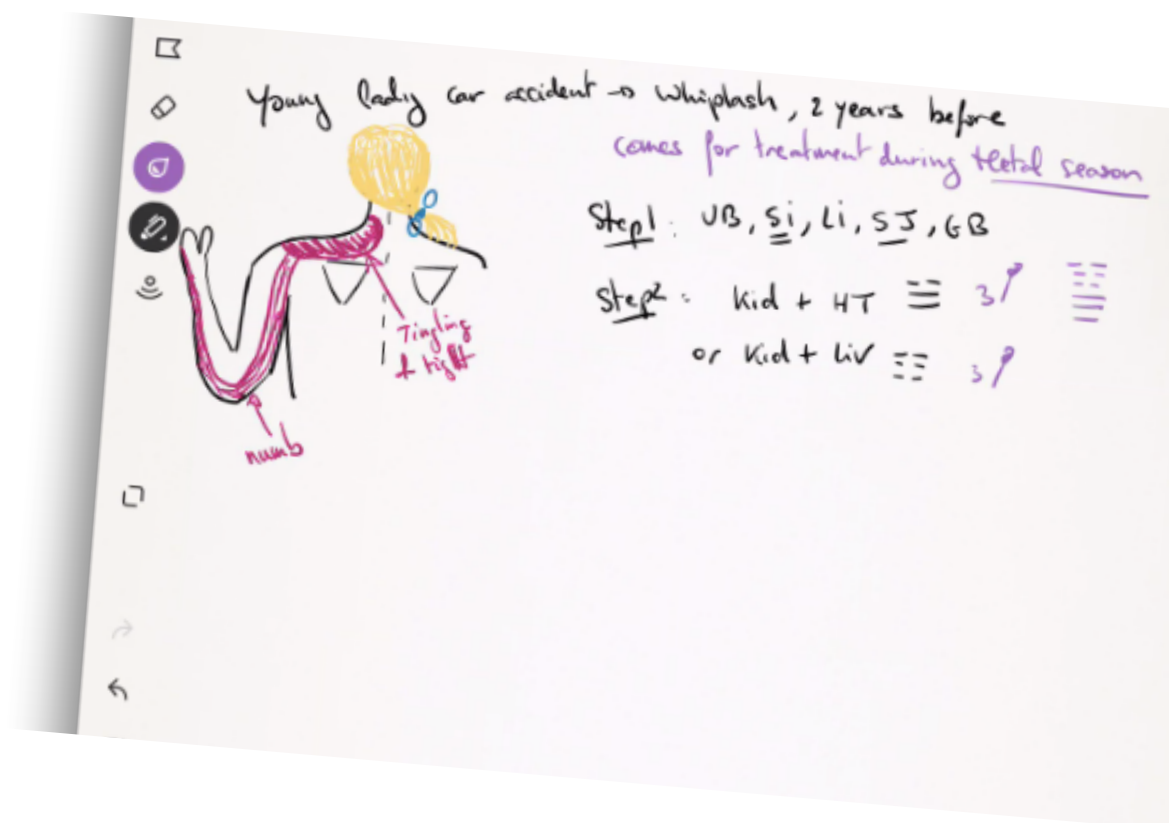 Young lady car accident → Whiplash, 2 years before
comes for treatment during Metal season
Step1: UB, Si, Li, SJ, GB
Step2: Kid + HT ☰ 3
or Kid + Liv ☷ 3
Tingling
+ tight
numb